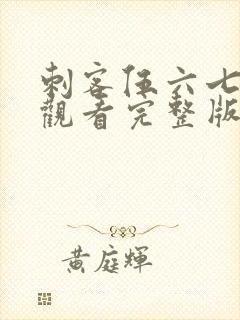 刺客伍六七
觀看完整版
黃庭輝